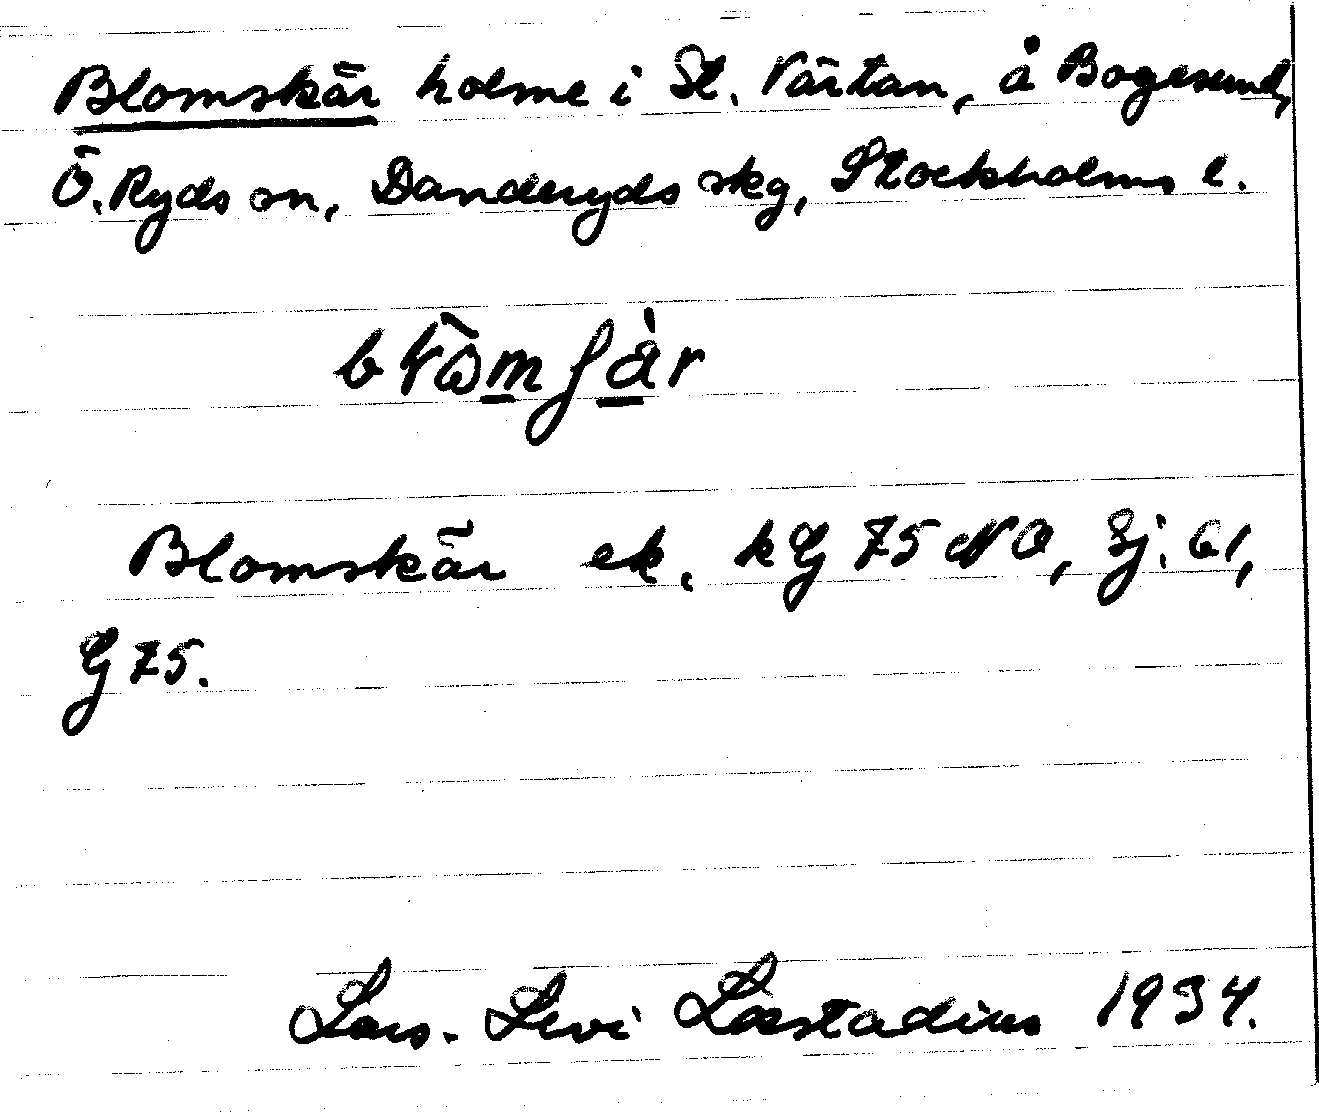 Blomskär holme i St. Värtan, å Bogesund,
Ö. Ryds sn, Danderyds skg, Stockholms l.
Blomskär ek. kG 75 NO, Sj. 61,
G 75.
Lars-Levi Læstadius 1934.